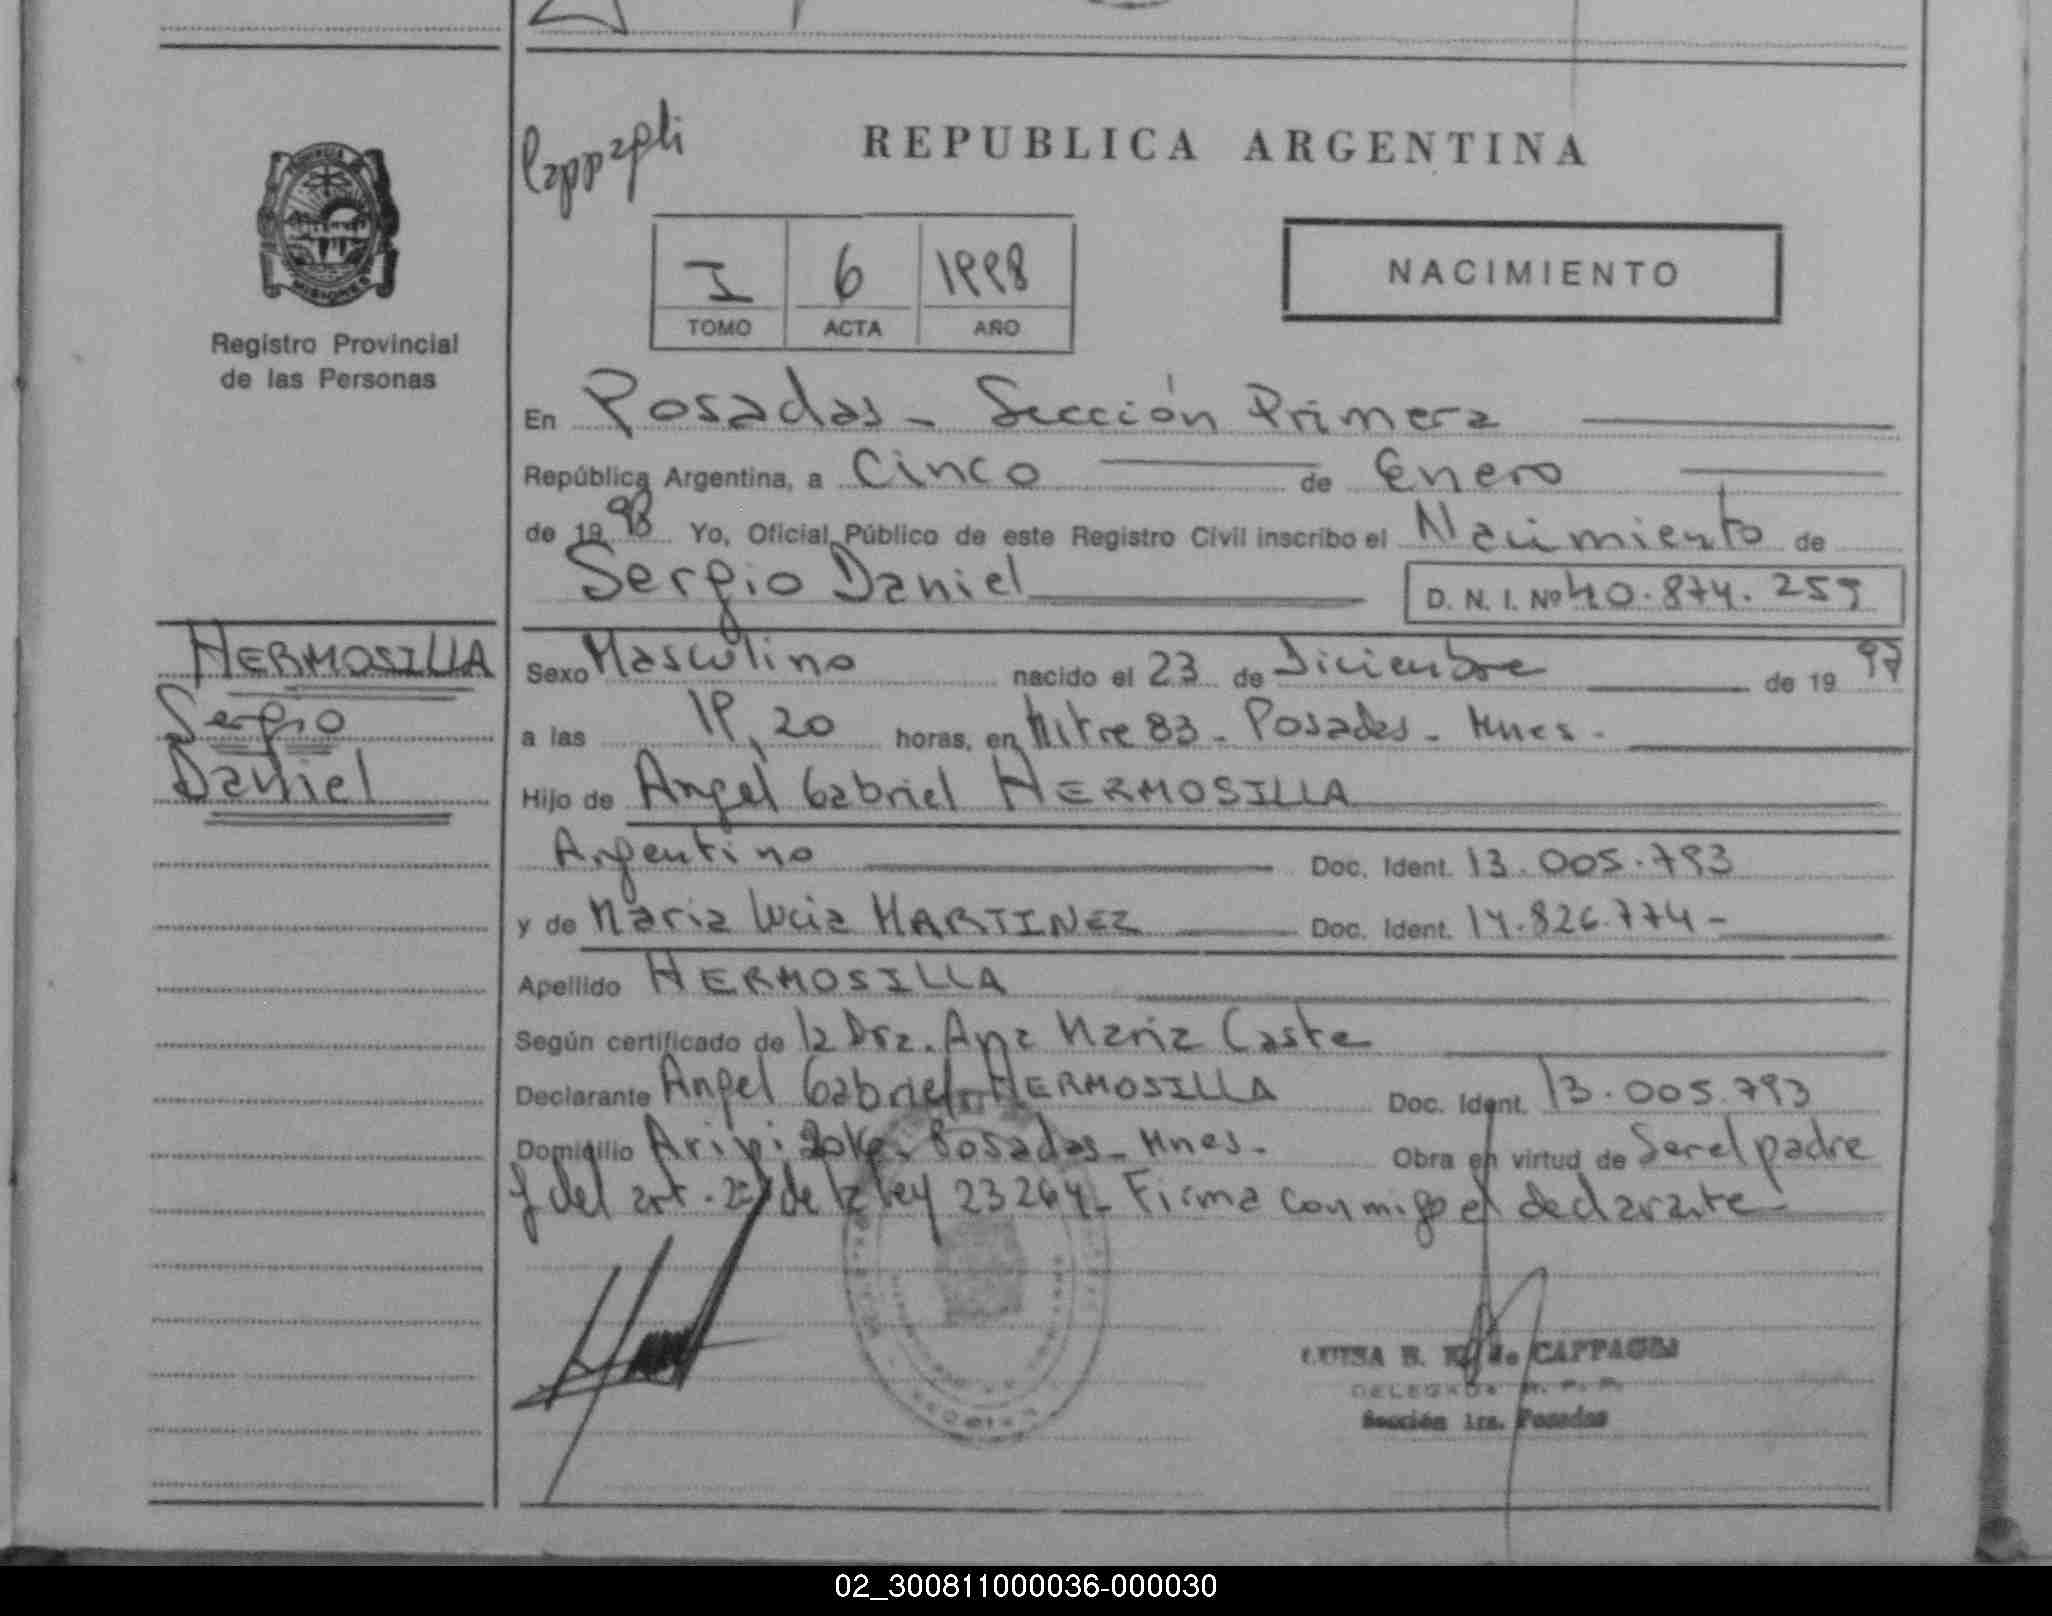 Cappagli
REPUBLICA ARGENTINA
PROVINCIA DE
MISIONES
Registro Provincial
de las Personas
I 6 1998
TOMO ACTA AÑO
NACIMIENTO
En Posadas - Sección Primera
República Argentina, a Cinco de Enero
de 1998 Yo, Oficial Público de este Registro Civil inscribo el Nacimiento de
Sergio Daniel D. N. I. Nº 40.874.259
HERMOSILLA
Sergio
Daniel
Sexo Masculino nacido el 23 de Diciembre de 1997
a las 19,20 horas, en Mitre 83 - Posadas - Mnes -
Hijo de Angel Gabriel HERMOSILLA
Argentino Doc. Ident. 13.005.793
y de Maria Lucia MARTINEZ Doc. Ident. 14.826.774 -
Apellido HERMOSILLA
Según certificado de la Dra. Ana Maria Caste
Declarante Angel Gabriel HERMOSILLA Doc. Ident. 13.005.793
Domicilio Posadas - Mnes - Obra en virtud de Ser el padre
y del art. de la ley 23264 - Firma conmigo el declarante -
LUISA B. de CAPPAGLI
DELEGADA R. P. P.
Sección 1ra. Posadas
02_300811000036-000030